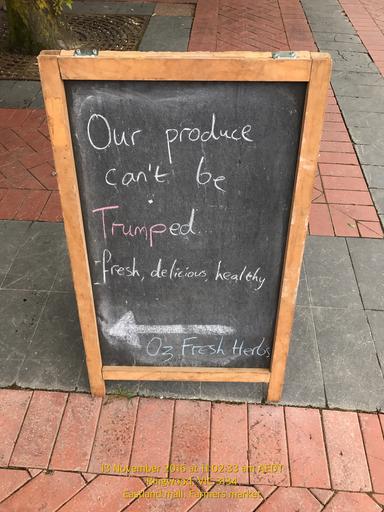 Our produce
can't be
Trumped
fresh, delicious, healthy
Oz Fresh Herbs
13 November 2016 at 11:02:33 am AEDT
Ringwood, VIC, 3134
Eastland mall. Farmers market.